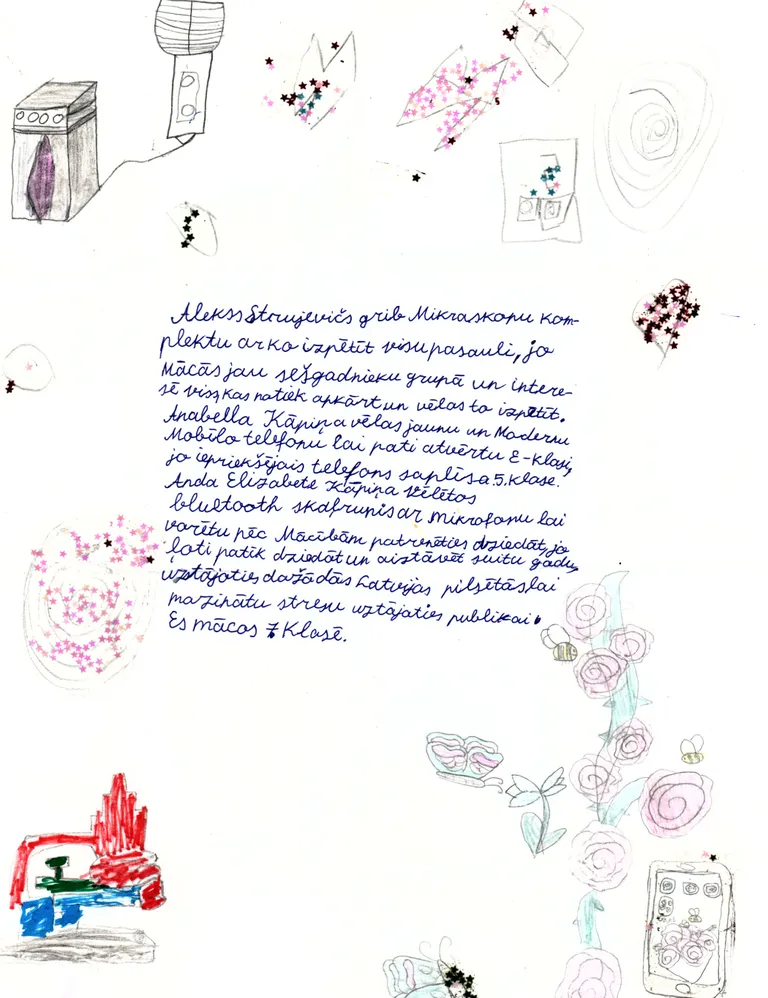 Alekss Strujevičs grib Mikraskopu kom-
plektu ar ko izpētīt visu pasauli, jo
Mācās jau sešgadnieku grupā un intere-
sē viss, kas notiek apkārt un vēlas to izpētīt.
Anabella Kāpiņa vēlas jaunu un Modernu
Mobīlo telefonu lai pati atvērtu E-klasi,
jo iepriekšējais telefons saplīsa 5. klase.
Anda Elizabete Kāpiņa vēlētos
bluetooth skaļrunis ar mikrofonu lai
varētu pēc Mācībām patrenēties dziedāt, jo
ļoti patīk dziedāt un aizstāvēt suitu godu,
uzstājoties dažādās Latvijas pilsētās lai
mazinātu stresu uzstājoties publikai.
Es mācos 7 Klasē.